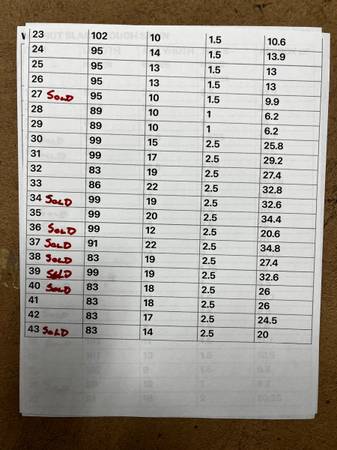 23 102 10 1.5 10.6
24 95 14 1.5 13.9
25 95 13 1.5 13
26 95 13 1.5 13
27 SOLD 95 10 1.5 9.9
28 89 10 1 6.2
29 89 10 1 6.2
30 99 15 2.5 25.8
31 99 17 2.5 29.2
32 83 19 2.5 27.4
33 86 22 2.5 32.8
34 SOLD 99 19 2.5 32.6
35 99 20 2.5 34.4
36 SOLD 99 12 2.5 20.6
37 SOLD 91 22 2.5 34.8
38 SOLD 83 19 2.5 27.4
39 SOLD 99 19 2.5 32.6
40 SOLD 83 18 2.5 26
41 83 18 2.5 26
42 83 17 2.5 24.5
43 SOLD 83 14 2.5 20